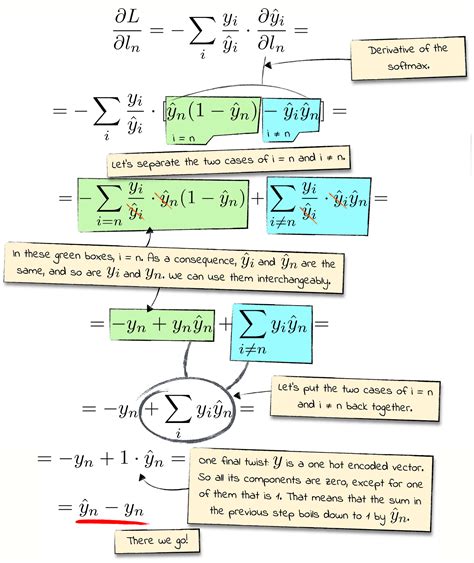 ∂L/∂lₙ = − ∑ᵢ yᵢ/ŷᵢ · ∂ŷᵢ/∂lₙ =
Derivative of the
softmax.
= − ∑ᵢ yᵢ/ŷᵢ · [ŷₙ(1 − ŷₙ) − ŷᵢŷₙ] =
i = n
i ≠ n
Let's separate the two cases of i = n and i ≠ n.
= − ∑ᵢ₌ₙ yᵢ/ŷᵢ · ŷₙ(1 − ŷₙ) + ∑ᵢ≠ₙ yᵢ/ŷᵢ · ŷᵢŷₙ =
In these green boxes, i = n. As a consequence, ŷᵢ and ŷₙ are the
same, and so are yᵢ and yₙ. We can use them interchangeably.
= −yₙ + yₙŷₙ + ∑ᵢ≠ₙ yᵢŷₙ =
Let's put the two cases of i = n
and i ≠ n back together.
= −yₙ + ∑ᵢ yᵢŷₙ =
= −yₙ + 1 · ŷₙ =
One final twist: y is a one hot encoded vector.
So all its components are zero, except for one
of them that is 1. That means that the sum in
the previous step boils down to 1 by ŷₙ.
= ŷₙ − yₙ
There we go!